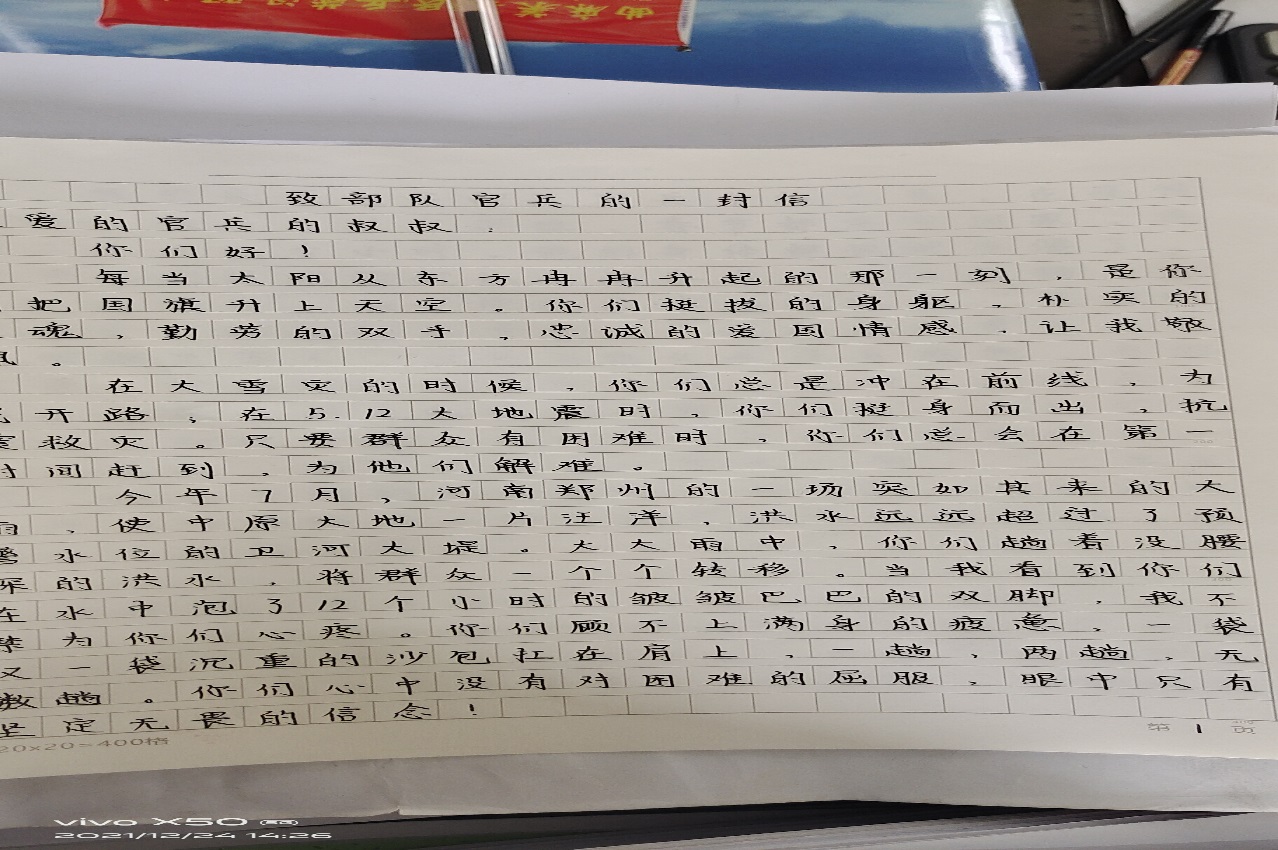 致部队官兵的一封信
爱的官兵的叔叔:
你们好!
每当太阳从东方冉冉升起的那一刻,是你
把国旗升上天空。你们挺拔的身躯,朴实的
魂,勤劳的双手,忠诚的爱国情感,让我敬
。
在大雪灾的时候,你们总是冲在前线,为
开路,在5.12大地震时,你们挺身而出,抗
救灾。只要群众有困难时,你们总会在第一
时间赶到,为他们解难。
今年7月,河南郑州的一场突如其来的大
雨,使中原大地一片汪洋,洪水远远超过了预
警水位的卫河大堤。大大雨中,你们趟着没腰
深的洪水,将群众一个个转移。当我看到你们
在水中泡了12个小时的皱皱巴巴的双脚,我不
禁为你们心疼。你们顾不上满身的疲惫,一袋
又一袋沉重的沙包扛在肩上,一趟,两趟,无
数趟。你们心中没有对困难的屈服,眼中只有
坚定无畏的信念!
20×20=400格
第1页
vivo X50
2021/12/24 14:26